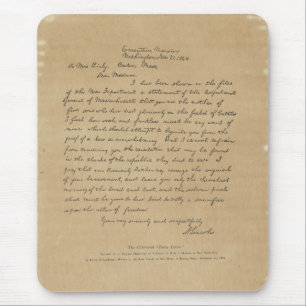 Executive Mansion
Washington, Nov 21, 1864
To Mrs Bixby, Boston, Mass,
Dear Madam,
I have been shown in the files
of the War Department a statement of the Adjutant
General of Massachusetts that you are the mother of
five sons who have died gloriously on the field of battle
I feel how weak and fruitless must be any word of
mine which should attempt to beguile you from the
grief of a loss so overwhelming. But I cannot refrain
from tendering you the consolation that may be found
in the thanks of the republic they died to save. I
pray that our Heavenly Father may assuage the anguish
of your bereavement, and leave you only the cherished
memory of the loved and lost, and the solemn pride
that must be yours to have laid so costly a sacrifice
upon the altar of freedom
Yours very sincerely and respectfully
A Lincoln
The Celebrated "Bixby Letter"